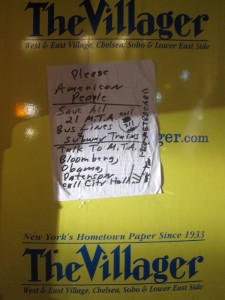 The Villager
West & East Village, Chelsea, Soho & Lower East Side
Please
American
People
Save All
21 M.T.A
Bus Lines
Subway Trains
Talk To M.T.A.
Bloomberg
Obama
Paterson
Call City Hall
ager.com
New York's Hometown Paper Since 1933
The Villager
West & East Village, Chelsea, Soho & Lower East Side